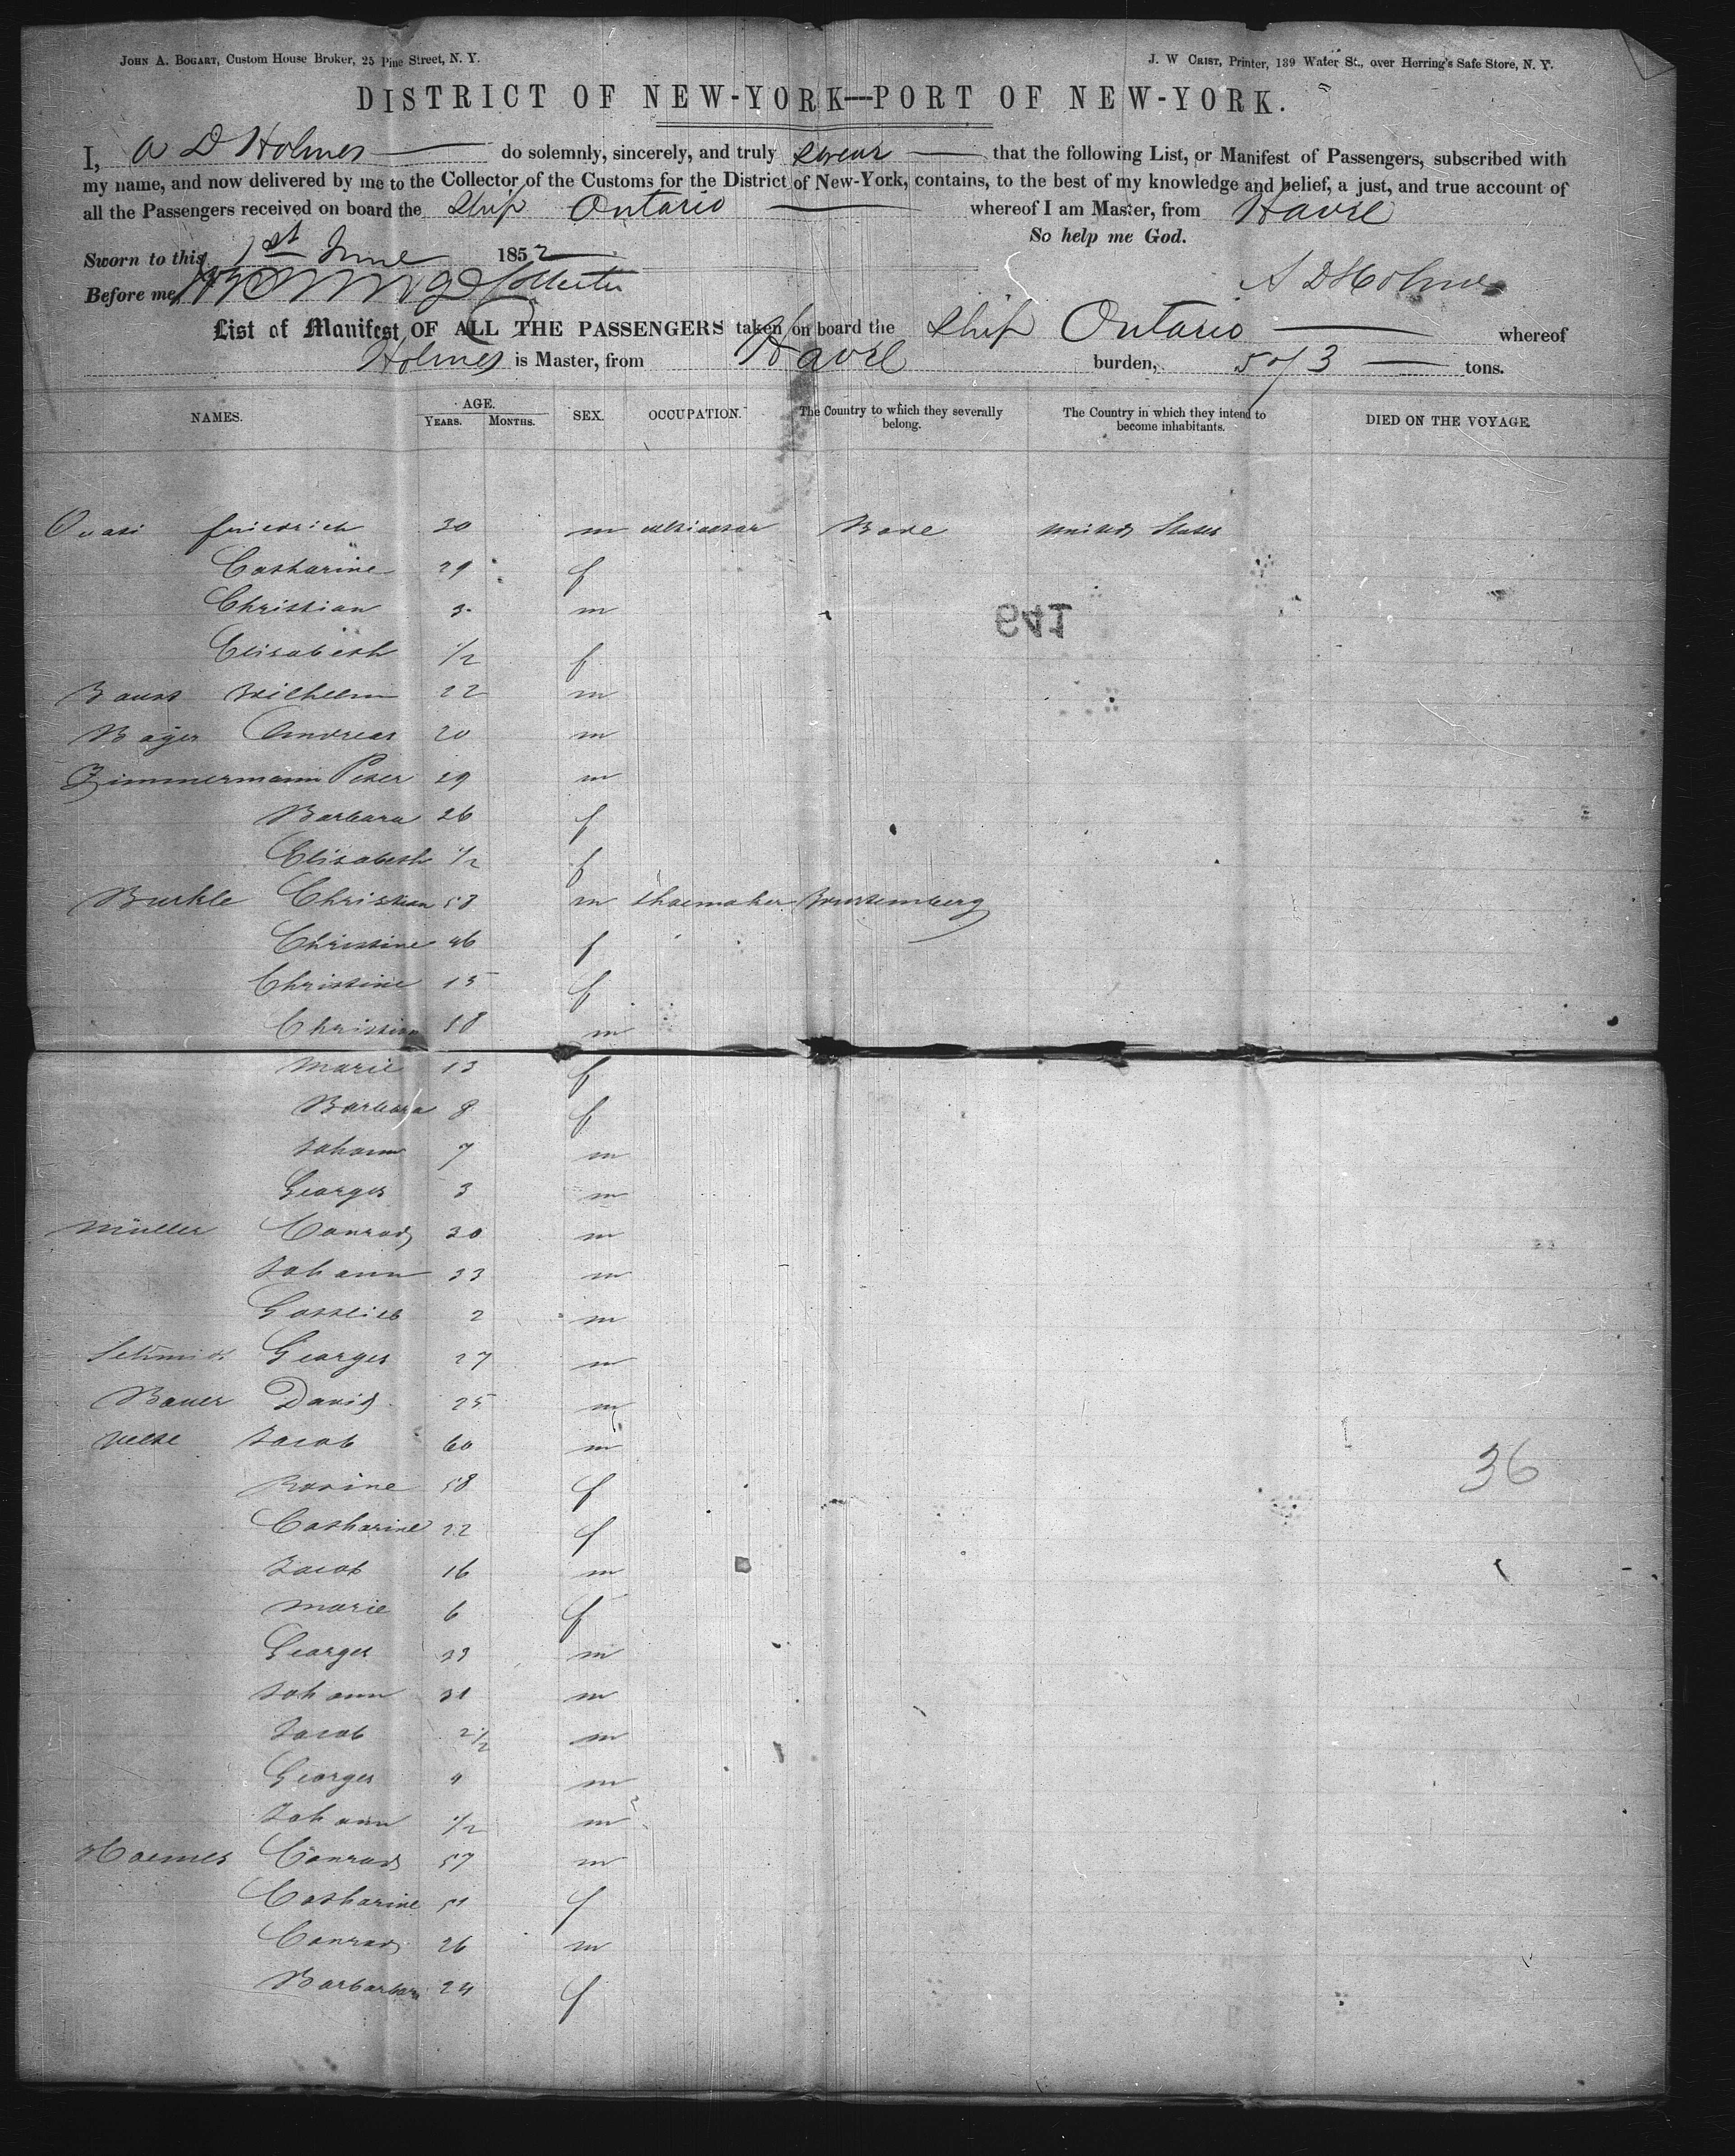 JOHN A. BOGART, Custom House Broker, 25 Pine Street, N. Y.
J. W CRIST, Printer, 139 Water St., over Herring's Safe Store, N. Y.
DISTRICT OF NEW-YORK—PORT OF NEW-YORK.
I, A D Holmes do solemnly, sincerely, and truly swear that the following List, or Manifest of Passengers, subscribed with
my name, and now delivered by me to the Collector of the Customs for the District of New-York, contains, to the best of my knowledge and belief, a just, and true account of
all the Passengers received on board the Ship Ontario whereof I am Master, from Havre
So help me God.
Sworn to this 1st June 1852
A D Holmes
Before me, Collector
List of Manifest OF ALL THE PASSENGERS taken on board the Ship Ontario whereof
Holmes is Master, from Havre burden, 573 tons.
NAMES. AGE. YEARS. MONTHS. SEX. OCCUPATION. The Country to which they severally belong. The Country in which they intend to become inhabitants. DIED ON THE VOYAGE.
Friedrich 30 m Bade United States
Catharine 29 f
Christian 3 m
641
Elisabeth 1/2 f
Wilhelm 22 m
Bager Andreas 20 m
Zimmermann Peter 29 m
Barbara 26 f
Elisabeth 1/2 f
Burkle Christian 58 m shoemaker Wurtemberg
Christine 46 f
Christine 15 f
Christian 18 m
Marie 13 f
Barbara 8 f
Johann 7 m
Georges 3 m
Müller Conrad 30 m
Johann 33 m
Gottlieb 2 m
Schmidt Georges 27 m
Bauer David 25 m
Jacob 60 m
36
Rosine 58 f
Catharine 22 f
Jacob 16 m
Marie 6 f
Georges 33 m
Johann 31 m
Jacob 2 1/2 m
Georges 4 m
Johann 1/2 m
Conrad 57 m
Catharine 51 f
Conrad 26 m
Barbarbara 24 f